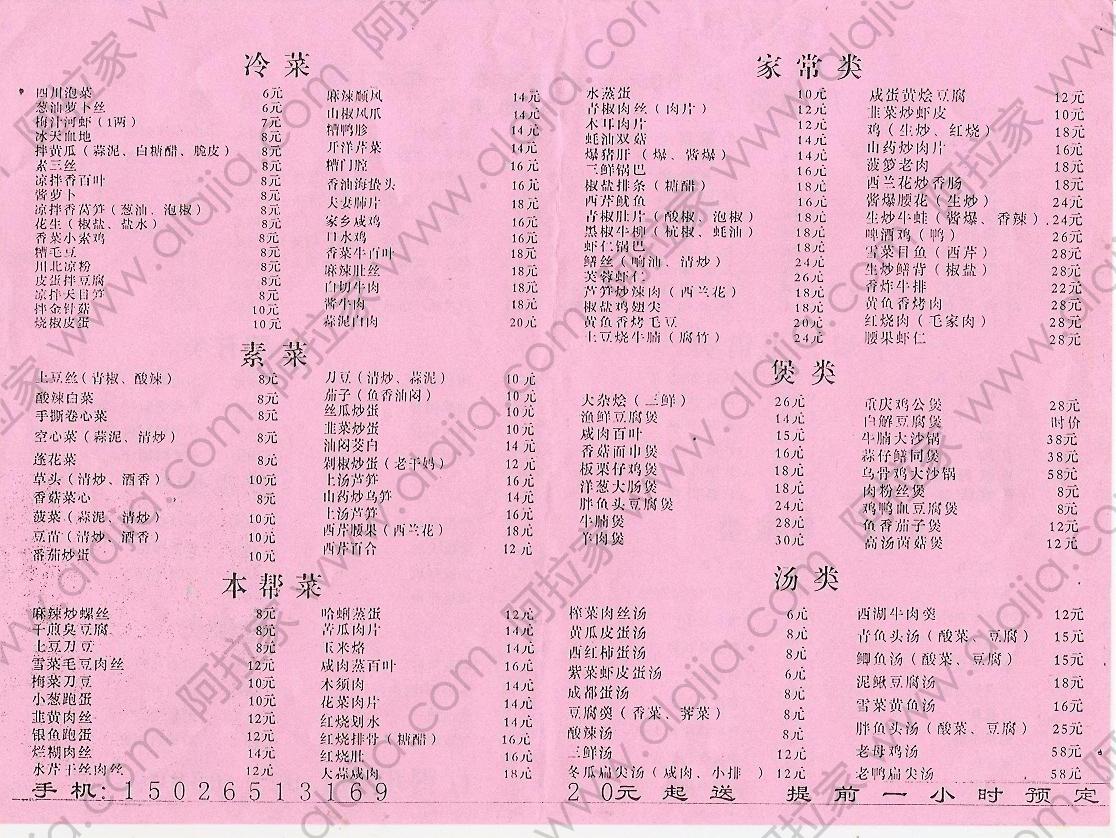 冷菜
四川泡菜 6元
葱油萝卜丝 6元
梅汁河虾（1两） 7元
冰天血地 8元
拌黄瓜（蒜泥、白糖醋、脆皮） 8元
素三丝 8元
凉拌香百叶 8元
酱萝卜 8元
凉拌香莴笋（葱油、泡椒） 8元
花生（椒盐、盐水） 8元
香菜小素鸡 8元
糟毛豆 8元
川北凉粉 8元
皮蛋拌豆腐 8元
凉拌天目笋 8元
拌金针菇 10元
烧椒皮蛋 10元
麻辣顺风 14元
山椒凤爪 14元
糟鸭胗 14元
开洋芹菜 14元
糟门腔 16元
香油海蛰头 16元
夫妻肺片 18元
家乡咸鸡 16元
口水鸡 16元
香菜牛百叶 18元
麻辣肚丝 18元
白切牛肉 18元
酱牛肉 18元
蒜泥白肉 20元
素菜
土豆丝（青椒、酸辣） 8元
酸辣白菜 8元
手撕卷心菜 8元
空心菜（蒜泥、清炒） 8元
蓬花菜 8元
草头（清炒、酒香） 10元
香菇菜心 8元
菠菜（蒜泥、清炒） 10元
豆苗（清炒、酒香） 10元
番茄炒蛋 10元
刀豆（清炒、蒜泥） 10元
茄子（鱼香油闷） 10元
丝瓜炒蛋 10元
韭菜炒蛋 10元
油闷茭白 14元
剁椒炒蛋（老干妈） 12元
上汤芦笋 16元
山药炒乌笋 14元
上汤芦笋 16元
西芹腰果（西兰花） 18元
西芹百合 12元
本帮菜
麻辣炒螺丝 8元
干煎臭豆腐 8元
土豆刀豆 8元
雪菜毛豆肉丝 12元
梅菜刀豆 10元
小葱跑蛋 10元
韭黄肉丝 12元
银鱼跑蛋 12元
烂糊肉丝 14元
水芹干丝肉丝 12元
哈蜊蒸蛋 12元
苦瓜肉片 14元
玉米烙 14元
咸肉蒸百叶 16元
木须肉 14元
花菜肉片 14元
红烧划水 14元
红烧排骨（糖醋） 16元
红烧肚 16元
大蒜咸肉 18元
手机：15026513169
家常类
水蒸蛋 10元
青椒肉丝（肉片） 12元
木耳肉片 12元
蚝油双菇 14元
爆猪肝（爆、酱爆） 14元
三鲜锅巴 16元
椒盐排条（糖醋） 16元
西芹鱿鱼 16元
青椒肚片（酸椒、泡椒） 18元
黑椒牛柳（杭椒、蚝油） 18元
虾仁锅巴 18元
鳝丝（响油、清炒） 24元
芙蓉虾仁 26元
芦笋炒辣肉（西兰花） 18元
椒盐鸡翅尖 18元
黄鱼香烤毛豆 20元
土豆烧牛腩（腐竹） 24元
咸蛋黄烩豆腐 12元
韭菜炒虾皮 10元
鸡（生炒、红烧） 18元
山药炒肉片 16元
菠萝老肉 18元
西兰花炒香肠 18元
酱爆腰花（生炒） 24元
生炒牛蛙（酱爆、香辣） 24元
啤酒鸡（鸭） 26元
雪菜目鱼（西芹） 28元
生炒鳝背（椒盐） 28元
香炸牛排 22元
黄鱼香烤肉 28元
红烧肉（毛家肉） 28元
腰果虾仁 28元
煲类
大杂烩（三鲜） 26元
渔鲜豆腐煲 14元
咸肉百叶 15元
香菇面巾煲 16元
板栗仔鸡煲 18元
洋葱大肠煲 18元
胖鱼头豆腐煲 24元
牛腩煲 28元
羊肉煲 30元
重庆鸡公煲 28元
白解豆腐煲 时价
牛腩大沙锅 38元
蒜仔鳝同煲 38元
乌骨鸡大沙锅 58元
肉粉丝煲 8元
鸡鸭血豆腐煲 8元
鱼香茄子煲 12元
高汤茵菇煲 12元
汤类
榨菜肉丝汤 6元
黄瓜皮蛋汤 8元
西红柿蛋汤 8元
紫菜虾皮蛋汤 6元
成都蛋汤 8元
豆腐羹（香菜、荠菜） 8元
酸辣汤 8元
三鲜汤 12元
冬瓜扁尖汤（咸肉、小排） 12元
西湖牛肉羹 12元
青鱼头汤（酸菜、豆腐） 15元
鲫鱼汤（酸菜、豆腐） 15元
泥鳅豆腐汤 18元
雪菜黄鱼汤 16元
胖鱼头汤（酸菜、豆腐） 25元
老母鸡汤 58元
老鸭扁尖汤 58元
20元起送 提前一小时预定
阿拉家 www.alajia.com